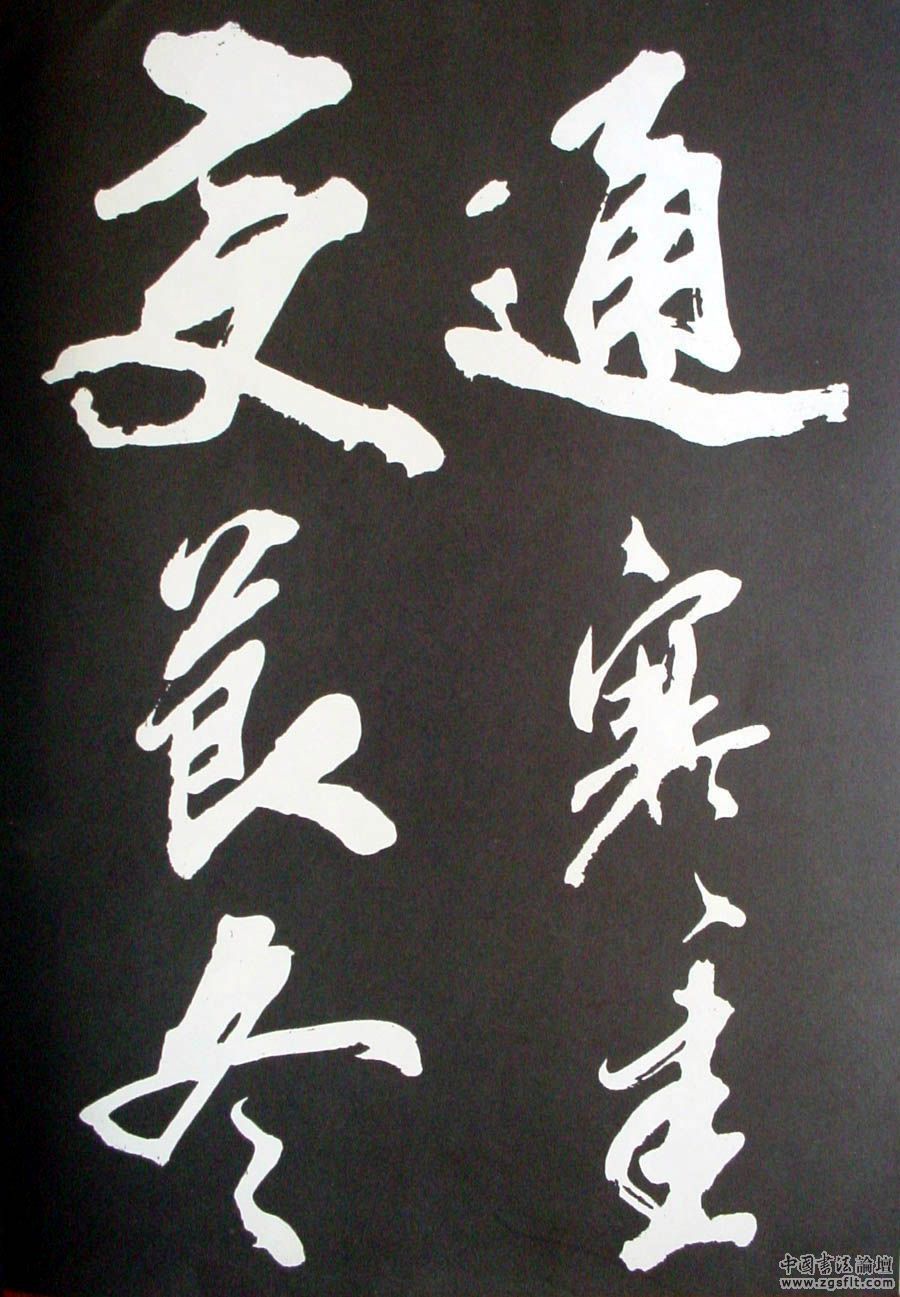 通寒
夏艮冬
中国书法論壇
www.zgsflt.com